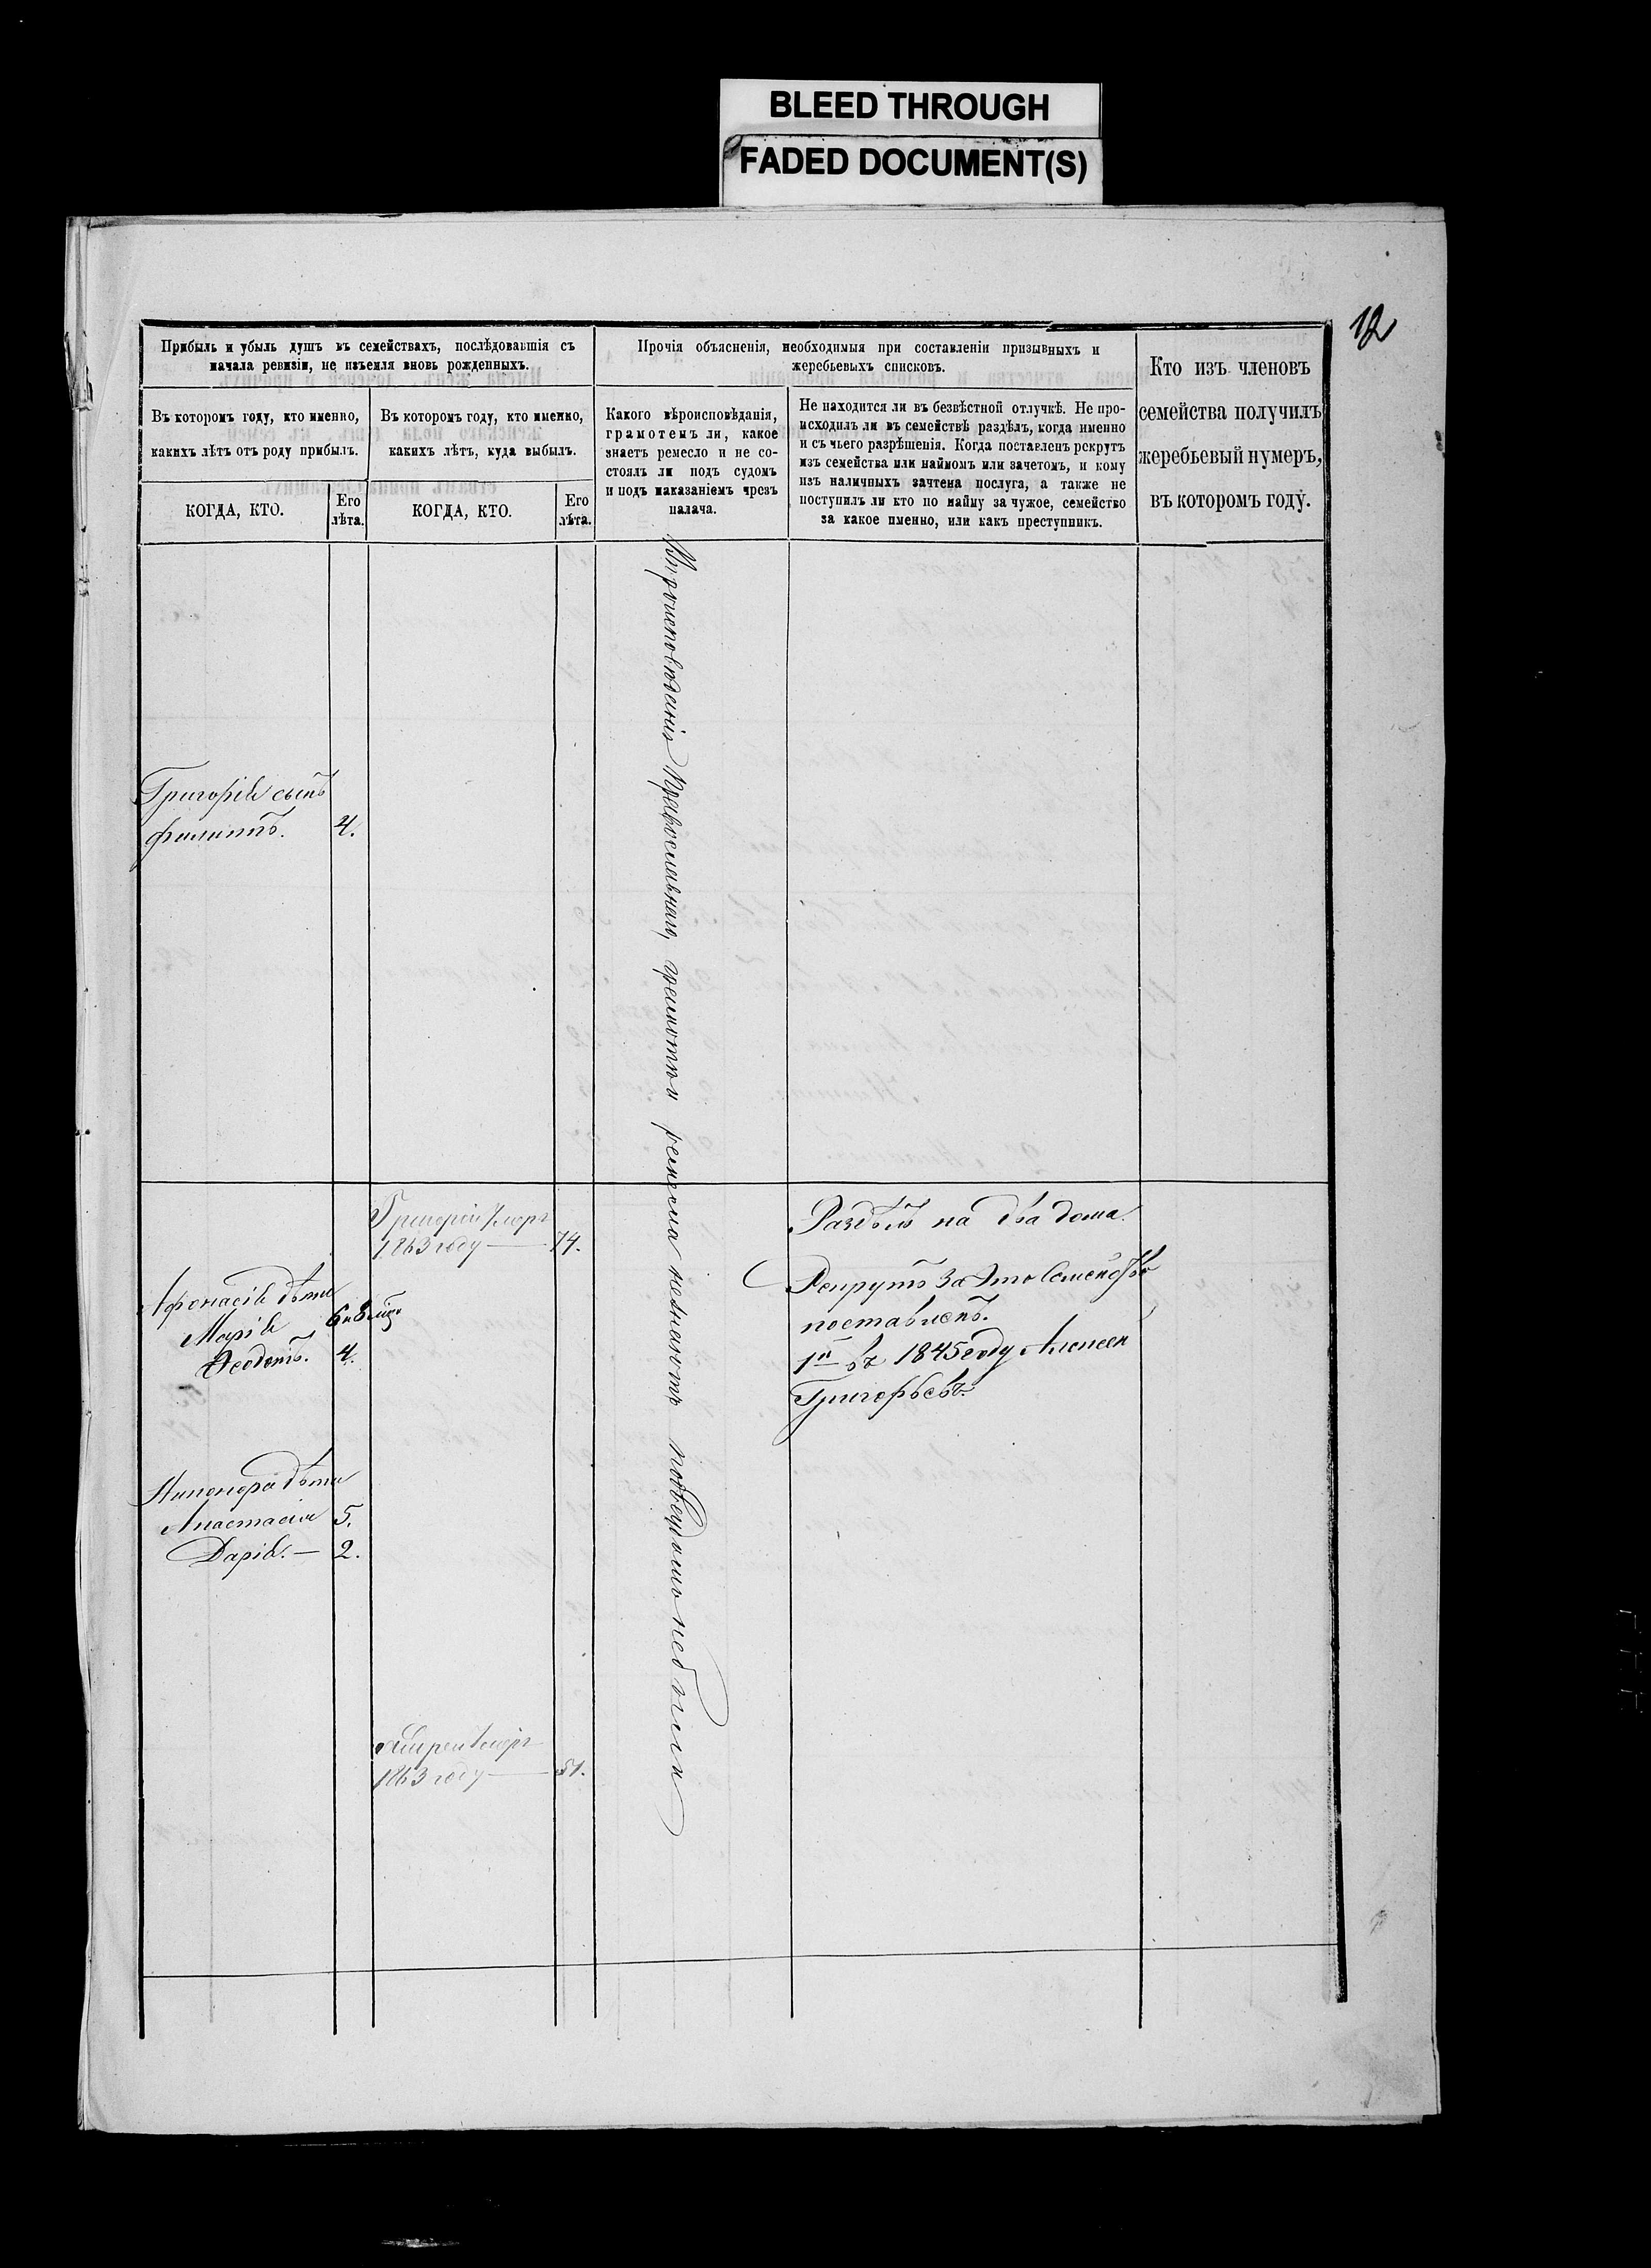 BLEED THROUGH
FADED DOCUMENT(S)
12
Прибыль и убыль душъ въ семействахъ, послѣдовавшія съ
начала ревизіи, не изъемля вновь рожденныхъ.
Прочія объясненія, необходимыя при составленіи призывныхъ и
жеребьевыхъ списковъ.
Кто изъ членовъ
семейства получилъ
жеребьевый нумеръ,
въ которомъ году.
Въ которомъ году, кто именно,
какихъ лѣтъ отъ роду прибылъ.
Въ которомъ году, кто именно,
какихъ лѣтъ, куда выбылъ.
Какого вѣроисповѣданія,
грамотенъ ли, какое
знаетъ ремесло и не со-
стоялъ ли подъ судомъ
и подъ наказаніемъ чрезъ
палача.
Не находится ли въ безвѣстной отлучкѣ. Не про-
исходилъ ли въ семействѣ раздѣлъ, когда именно
и съ чьего разрѣшенія. Когда поставленъ рекрутъ
изъ семейства или наймомъ или зачетомъ, и кому
изъ наличныхъ зачтена послуга, а также не
поступилъ ли кто по найму за чужое, семейство
за какое именно, или какъ преступникъ.
КОГДА, КТО.
Его
лѣта.
КОГДА, КТО.
Его
лѣта.
Вѣроисповѣданія Православнаго, грамотѣ и ремесла незнаютъ подсудомъ небыли
Григорія сынъ
Филиппъ. 4.
Григорій умеръ
1863 году — 74.
Раздѣлъ на два дома.
Афонасія дѣти
Марія 6 и 8 мѣс
Ѳеодотъ. 4.
Рекрутъ За Это Семейство
поставленъ.
1й въ 1845 году Алексей
Григорьевъ.
Никонора дѣти
Анастасія 5.
Дарія. — 2.
умеръ
1863 году — 51.